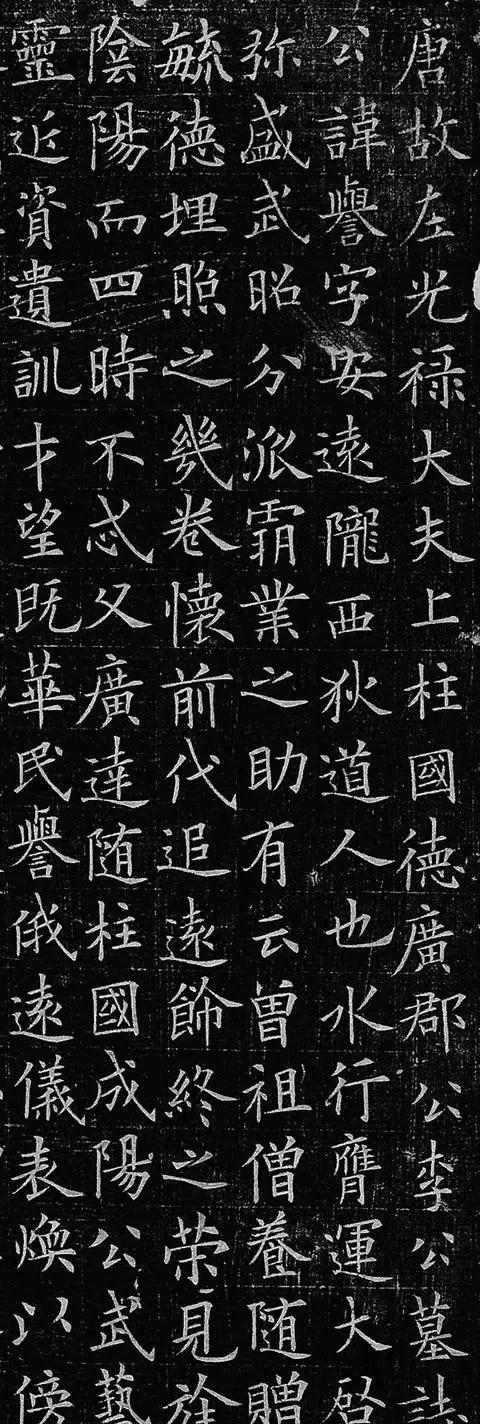 唐故左光禄大夫上柱國德廣郡公李公墓誌
公諱譽字安遠隴西狄道人也水行膺運大啓
弥盛武昭分派霸業之助有云曾祖僧養随贈
毓德埋照之幾卷懷前代追遠飾終之荣見
陰陽而四時不忒父廣達随柱國成陽公武藝
靈近資遺訓才望既華民譽俄遠儀表煥以傍